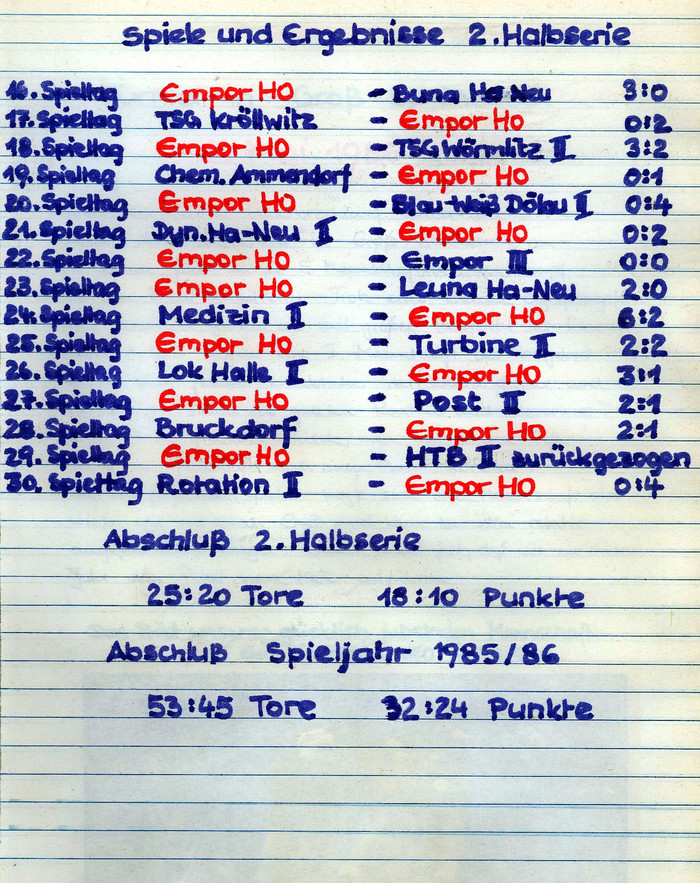 Spiele und Ergebnisse 2. Halbserie
16. Spieltag Empor HO - Buna Ha-Neu 3:0
17. Spieltag TSG Kröllwitz - Empor HO 0:2
18. Spieltag Empor HO - TSG Wörmlitz II 3:2
19. Spieltag Chem. Ammendorf - Empor HO 0:1
20. Spieltag Empor HO - Blau-Weiß Dölau II 0:4
21. Spieltag Dyn. Ha-Neu II - Empor HO 0:2
22. Spieltag Empor HO - Empor III 0:0
23. Spieltag Empor HO - Leuna Ha-Neu 2:0
24. Spieltag Medizin II - Empor HO 6:2
25. Spieltag Empor HO - Turbine II 2:2
26. Spieltag Lok Halle II - Empor HO 3:1
27. Spieltag Empor HO - Post II 2:1
28. Spieltag Bruckdorf - Empor HO 2:1
29. Spieltag Empor HO - HTB II zurückgezogen
30. Spieltag Rotation II - Empor HO 0:4
Abschluß 2. Halbserie
25:20 Tore 18:10 Punkte
Abschluß Spieljahr 1985/86
53:45 Tore 32:24 Punkte